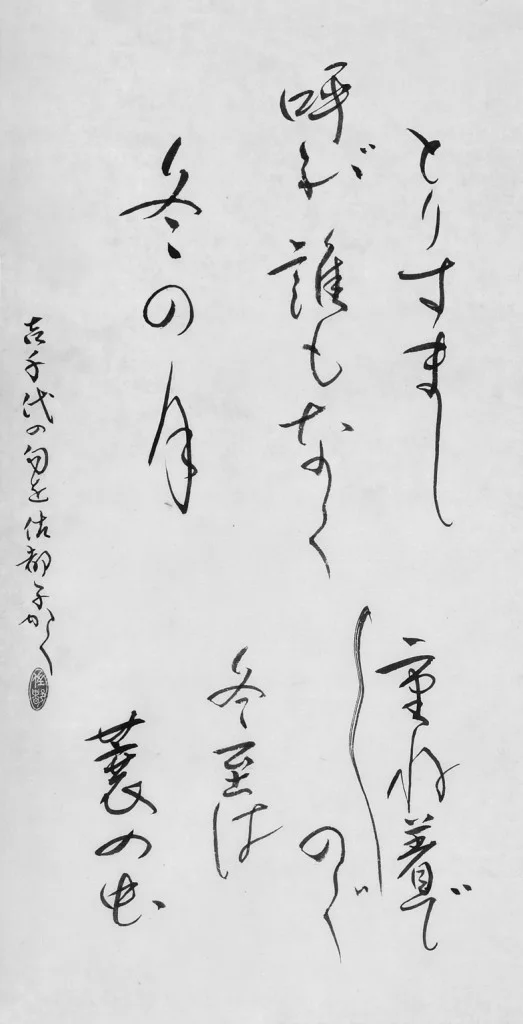 とりすまし
呼ぶ誰もなく
冬の月
重ね着で
しのぐ
冬至は
蓑の虫
千代の句を佐都子かく